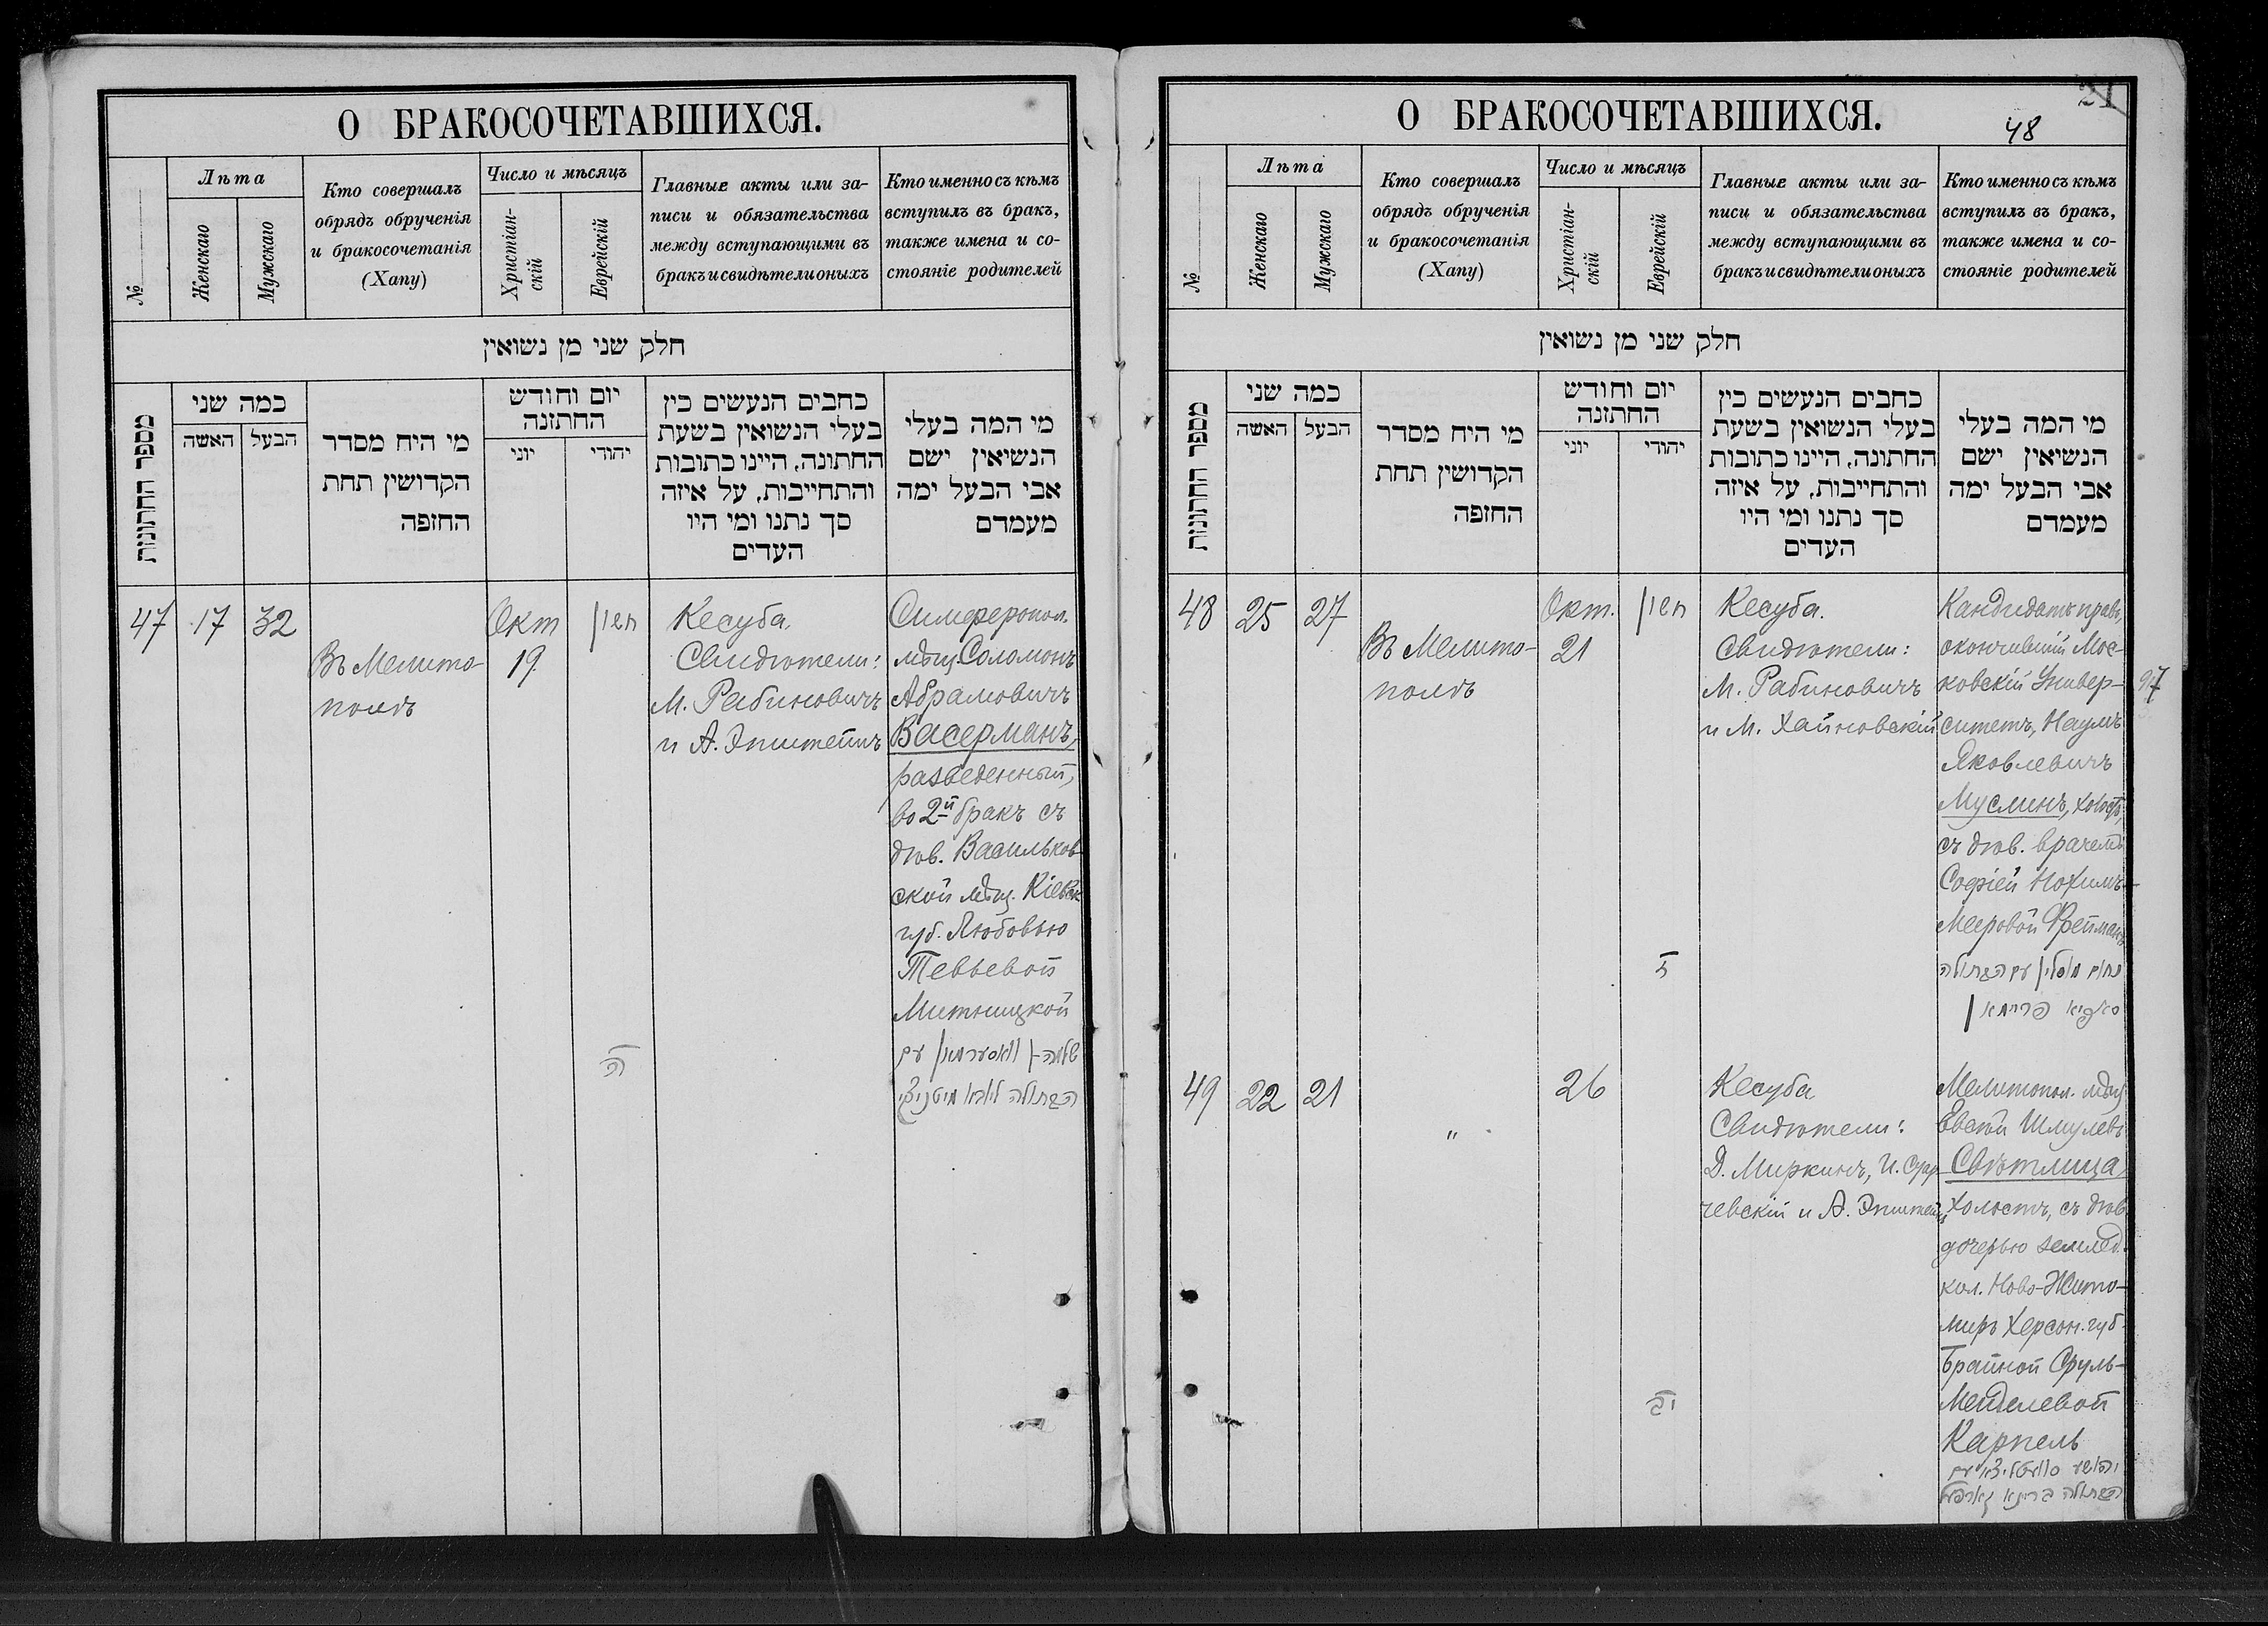 О БРАКОСОЧЕТАВШИХСЯ.
№
Лѣта
Женскаго
Мужскаго
Кто совершалъ
обрядъ обрученія
и бракосочетанія
(Хапу)
Число и мѣсяцъ
Христіан-
скій
Еврейскій
Главные акты или за-
писи и обязательства
между вступающими въ
бракъ и свидѣтели оныхъ
Кто именно съ кѣмъ
вступилъ въ бракъ,
также имена и со-
стояніе родителей
חלק שני מן נשואין
מספר החתונות
כמה שני
האשה
הבעל
מי היח מסדר
הקדושין תחת
החופה
יום וחודש
החתונה
יוני
יהודי
כתבים הנעשים בין
בעלי הנשואין בשעת
החתונה, היינו כתובות
והתחייבות, על איזה
סך נתנו ומי היו
העדים
מי המה בעלי
הנשיאין ישם
אבי הבעל ימה
מעמדם
47
17
32
Въ Мелито-
полѣ
Окт
19
חשון
ה
Кесуба.
Свидѣтели:
М. Рабиновичъ
и А. Эпштейнъ
Симферопол.
мѣщ. Соломонъ
Абрамовичъ
Васерманъ,
разведенный,
во 2й бракъ съ
дѣв. Васильков-
ской мѣщ. Кіевск
губ. Любовью
Тевьевой
Митницкой
שלמה וואסערמאן עם
הבתולה ליובא מיטניצקי
О БРАКОСОЧЕТАВШИХСЯ.
21
48
№
Лѣта
Женскаго
Мужскаго
Кто совершалъ
обрядъ обрученія
и бракосочетанія
(Хапу)
Число и мѣсяцъ
Христіан-
скій
Еврейскій
Главные акты или за-
писи и обязательства
между вступающими въ
бракъ и свидѣтели оныхъ
Кто именно съ кѣмъ
вступилъ въ бракъ,
также имена и со-
стояніе родителей
חלק שני מן נשואין
מספר החתונות
כמה שני
האשה
הבעל
מי היח מסדר
הקדושין תחת
החופה
יום וחודש
החתונה
יוני
יהודי
כתבים הנעשים בין
בעלי הנשואין בשעת
החתונה, היינו כתובות
והתחייבות, על איזה
סך נתנו ומי היו
העדים
מי המה בעלי
הנשיאין ישם
אבי הבעל ימה
מעמדם
48
25
27
Въ Мелито-
полѣ
Окт.
21
חשון
ז
Кесуба.
Свидѣтели:
М. Рабиновичъ
и М. Хайновскій
Кандидатъ правъ,
окончившій Мос-
ковскій Универ-
97
ситетъ, Наумъ
Яковлевичъ
Муслинъ, холостъ,
съ дѣв. врачемъ
Софіей Нохимъ-
Мееровой Фрейманъ
נחום מוסלין עם הבתולה
סאפיא פריימאן
49
22
21
"
26
יב
Кесуба
Свидѣтели:
Д. Миркинъ, И.
чевскій и А. Эпштейнъ
Мелитопол. мѣщ
Евсей Шмулевъ
Свѣтлица,
холостъ, съ дѣв
дочерью землед.
кол. Ново-Жито-
миръ Херсон. губ.
Брайной Сруль-
Менделевой
Карпель
יהושע סוועטליצא עם
הבתולה בריינא קארפעל